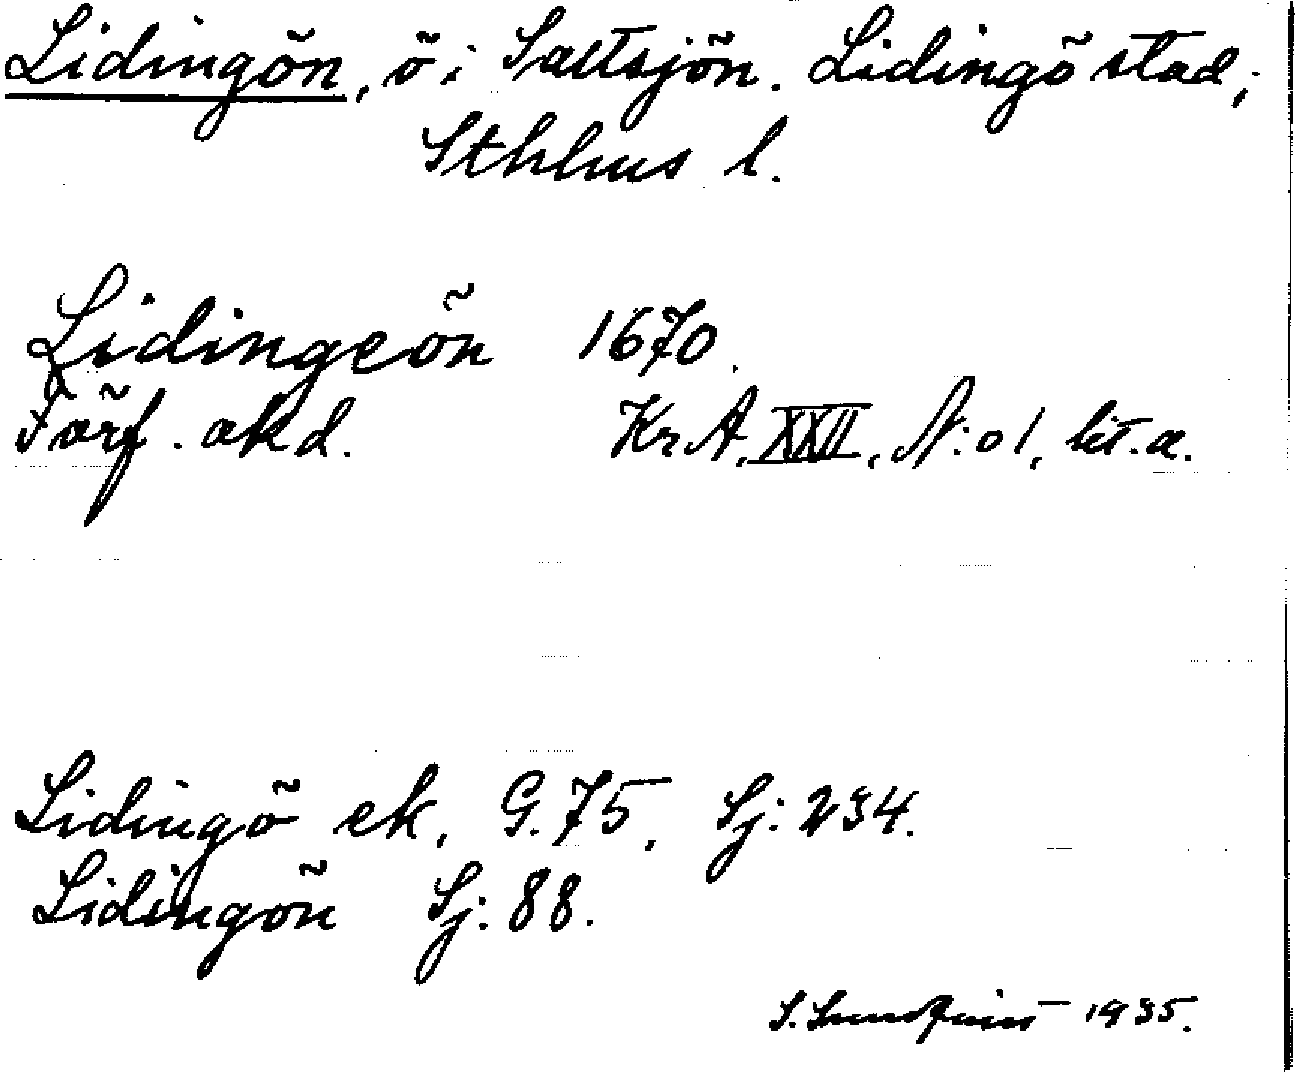 Lidingön, ö i Saltsjön. Lidingö stad,
Sthlms l.
Lidingeön 1670.
Förf. okd. Kr A, XXII, N:o 1, lit. a.
Lidingö ek, G. 75, Sj: 234.
Lidingön Sj: 88.
S. Sundquist 1935.